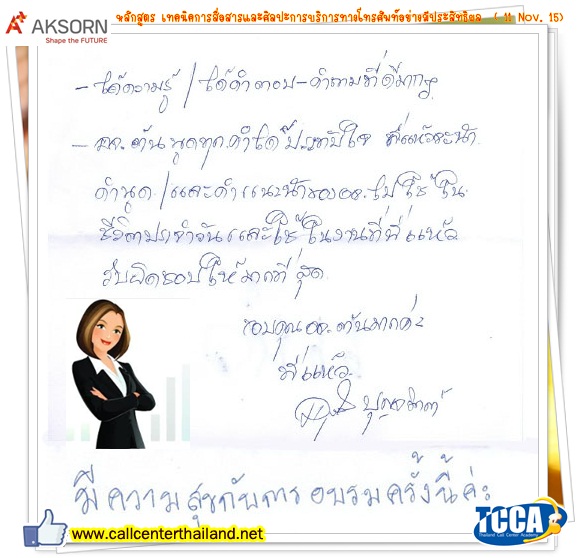 AKSORN
Shape the FUTURE
หลักสูตร เทคนิคการสื่อสารและศิลปะการบริการทางโทรศัพท์อย่างมีประสิทธิผล ( 11 Nov. 15)
- ได้ความรู้ / ได้คำตอบ - คำถามที่ดีมากๆ
- อจ. ต้น พูดทุกคำได้ประทับใจ พี่แห้วจะนำ
คำพูด / และคำแนะนำของอจ. ไปใช้ใน
ชีวิตประจำวันและใช้ในงานที่พี่แห้ว
รับผิดชอบให้มากที่สุด
ขอบคุณอจ. ต้นมากค่ะ
พี่แห้ว
มีความสุขกับการอบรมครั้งนี้ค่ะ
www.callcenterthailand.net
TCCA
Thailand Call Center Academy